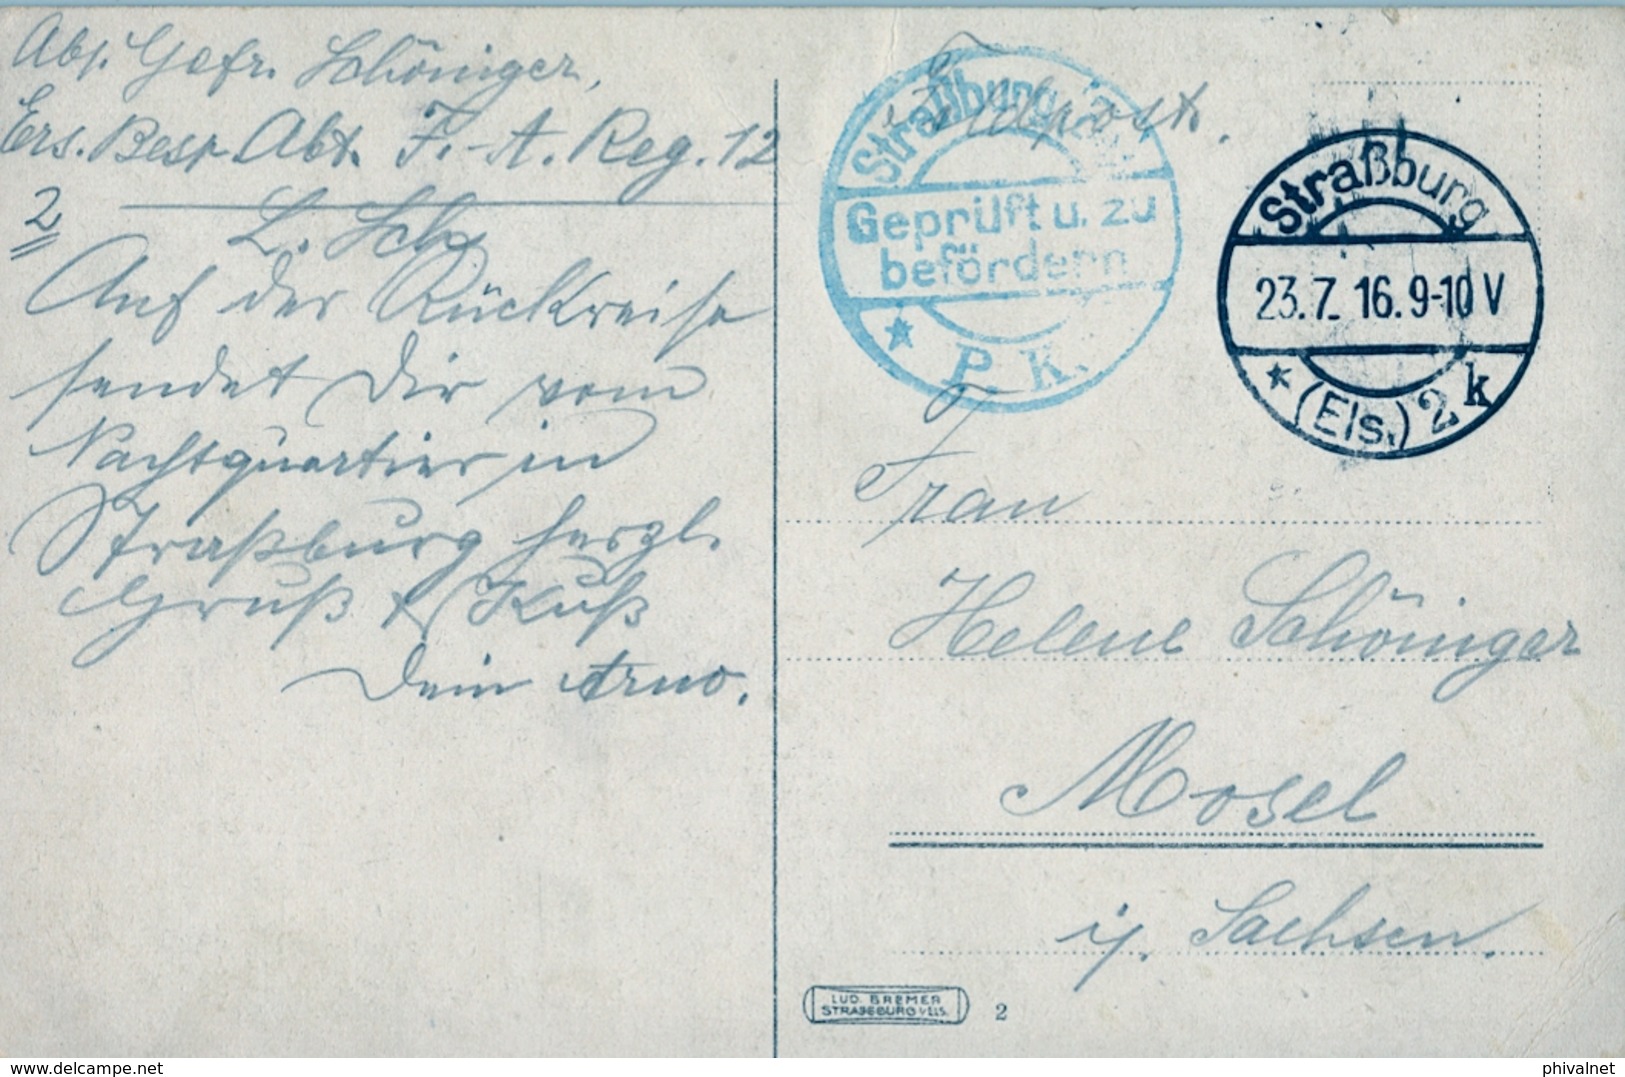 Abs. Gefr. Schöniger,
Ers. Besp. Abt. F.-A. Reg. 12
2
L. Sch
Auf der Rückreise
sendet Dir vom
Nachtquartier in
Straßburg herzl.
Gruß & Kuß
Dein Arno.
Feldpost.
Straßburg
Geprüft u. zu
befördern
P. K.
Straßburg
23.7. 16. 9-10 V
(Els.) 2 k
Frau
Helene Schöniger
Mosel
i/ Sachsen.
LUD. BREMER
STRASSBURG i/ELS.
2
delcampe.net
phivalnet